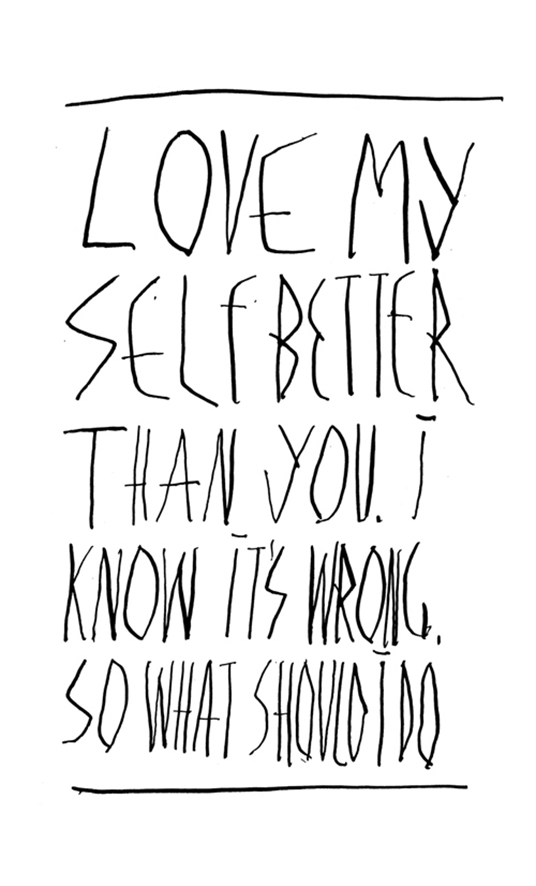 LOVE MY
SELF BETTER
THAN YOU. I
KNOW IT'S WRONG.
SO WHAT SHOULD I DO